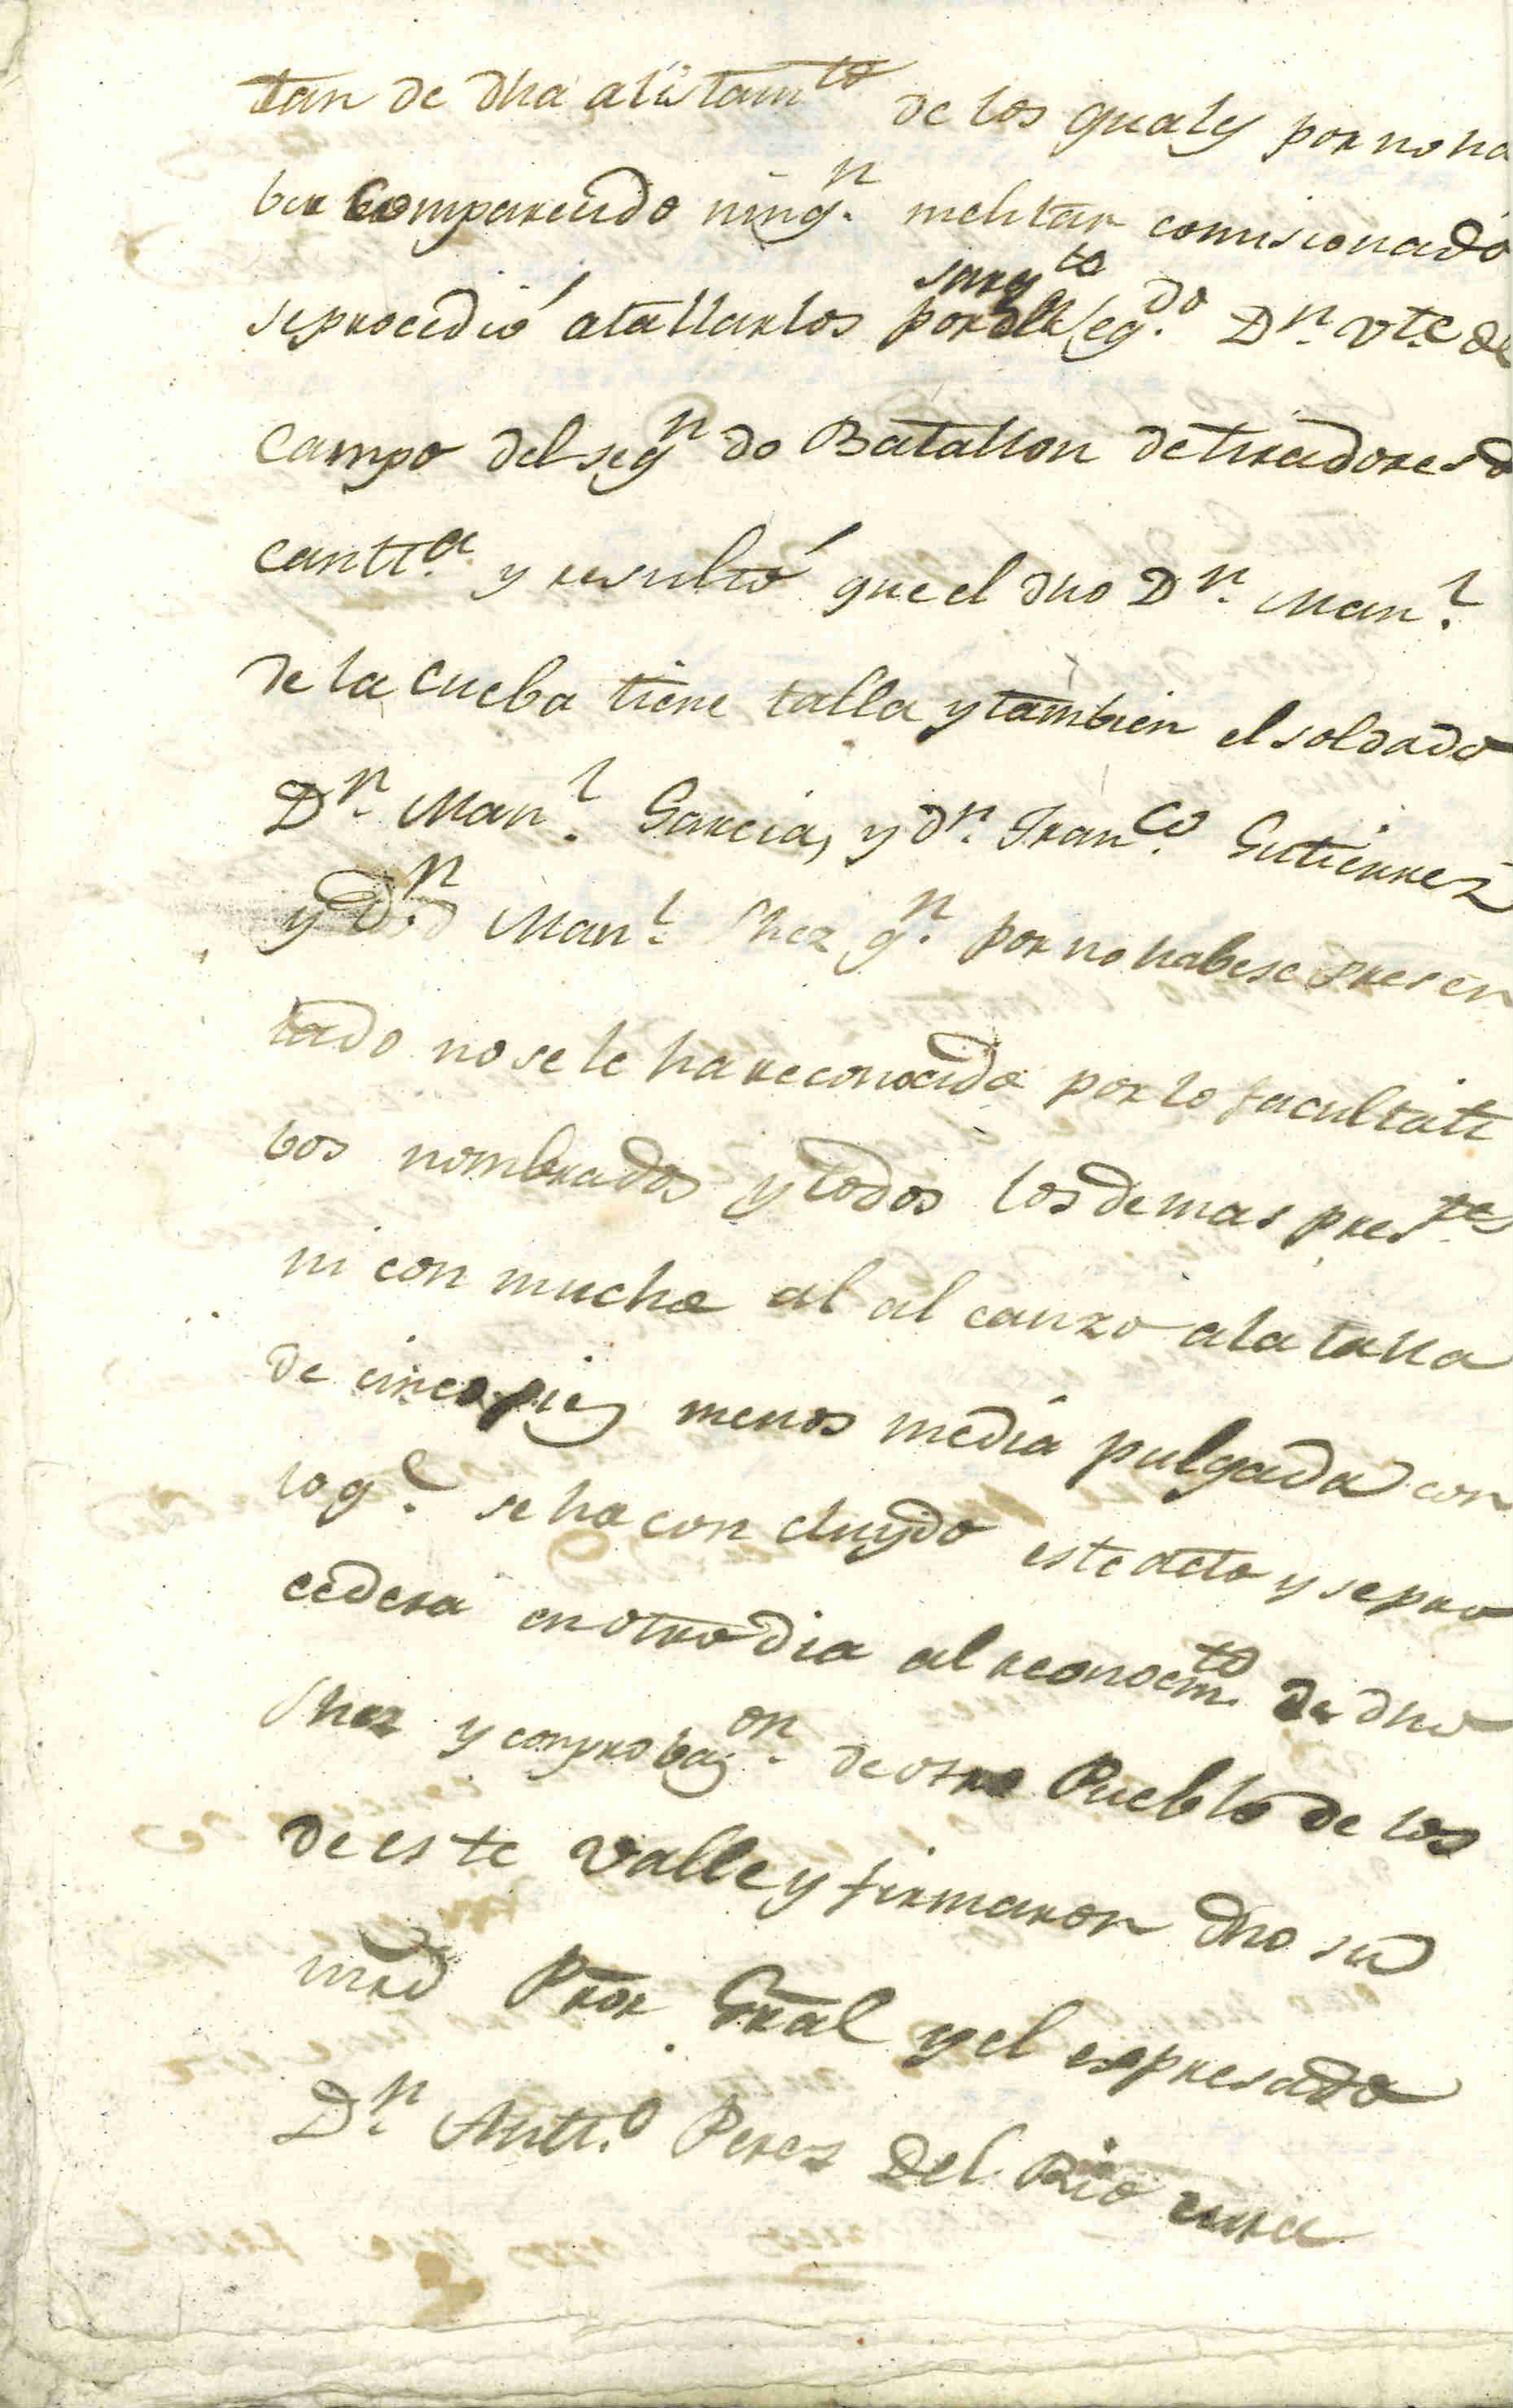 tan de dha alistamto de los qualeſ por no ha
ber comparecido ningn. melitar comisionado
seprocedió atallarlos por el sargto segdo. Dn. Vte de
Campo del segn do Batallon detiradores d
cantta. y resultó que el dho Dn. Manl.
de la Cueba tiene talla y tambien el soldado
Dn. Manl. Garcia, y dn. Franco. Gutierrez
y Dn. Manl. Shez qn. por no habese presen
tado no se le ha reconocido por lo facultati
bos nombrados y todos los demas presTes
ni con mucho al al canzo ala talla
de cinco pieſ menos media pulgada con
lo qe. se ha con cluydo este acto y sepro
cedera en otro dia al reconocimto. de dho
Shez y conprobazon. de otro Pueblo de los
de este Valle y firmaron dho su
mrd Pror Gral y el espresado
Dn. Antto. Perez Del Rio cura